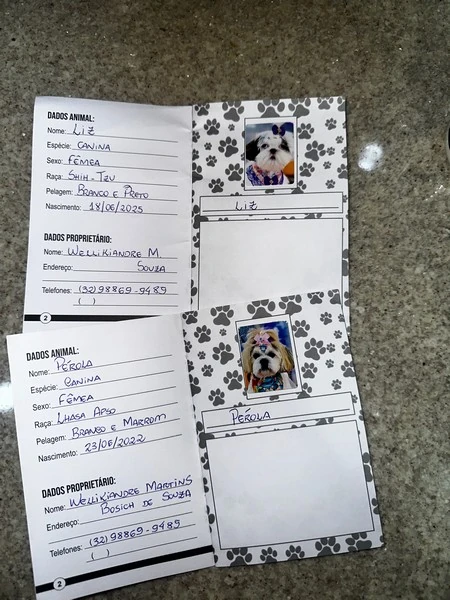 DADOS ANIMAL:
Nome: LIZ
Espécie: CANINA
Sexo: FÊMEA
Raça: SHIH-TZU
Pelagem: BRANCO E PRETO
Nascimento: 18/06/2025
DADOS PROPRIETÁRIO:
Nome: WELLIKIANDRE M.
Endereço: SOUZA
Telefones: (32) 98869-9489
( )
2
LIZ
DADOS ANIMAL:
Nome: PÉROLA
Espécie: CANINA
Sexo: FÊMEA
Raça: LHASA APSO
Pelagem: BRANCO E MARROM
Nascimento: 23/06/2022
DADOS PROPRIETÁRIO:
Nome: WELLIKIANDRE MARTINS
Endereço: BOSICH DE SOUZA
Telefones: (32) 98869-9489
( )
2
PÉROLA